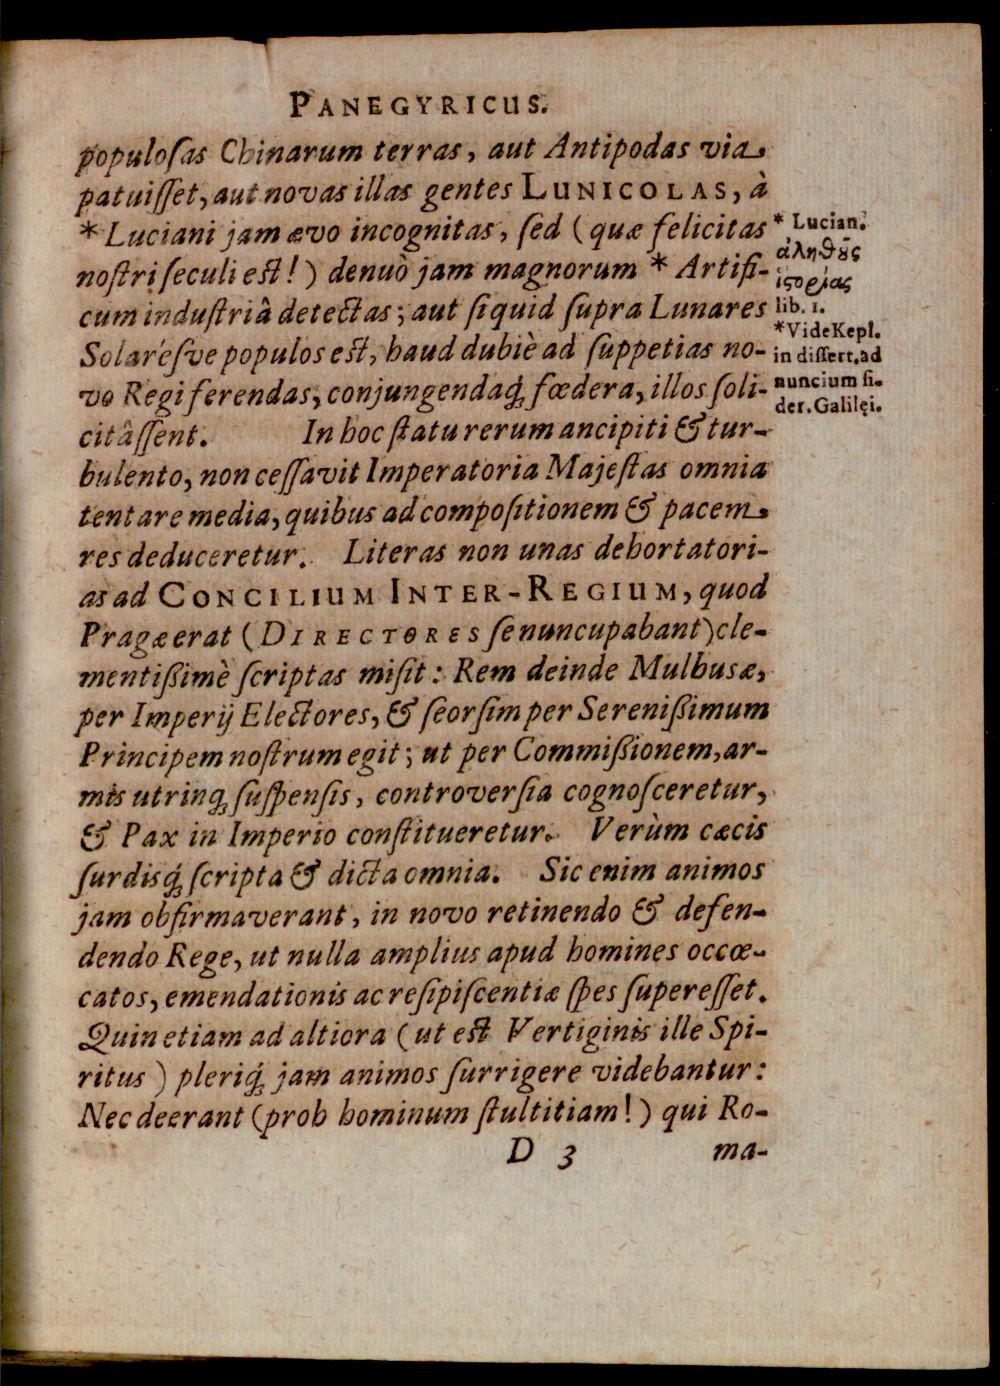 PANEGYRICUS.
populoſas Chinarum terras, aut Antipodas via
patuiſſet, aut novas illas gentes LUNICOLAS, à
* Luciani jam ævo incognitas, ſed (quæ felicitas
noſtri ſeculi est!) denuò jam magnorum * Artifi-
cum induſtriâ detectas; aut ſiquid ſupra Lunares
Solaréſve populos est, haud dubiè ad ſuppetias no-
vo Regi ferendas, conjungendaq́; fœdera, illos ſoli-
citâſſent. In hoc ſtatu rerum ancipiti & tur-
bulento, non ceſſavit Imperatoria Majeſtas omnia
tentare media, quibus ad compoſitionem & pacem
res deduceretur. Literas non unas dehortatori-
as ad CONCILIUM INTER-REGIUM, quod
Pragæ erat (DIRECTORES ſe nuncupabant) cle-
mentißimè ſcriptas miſit: Rem deinde Mulhusæ,
per Imperij Electores, & ſeorſim per Sereniſſimum
Principem noſtrum egit; ut per Commißionem, ar-
mis utrinq; ſuſpenſis, controverſia cognoſceretur,
& Pax in Imperio conſtitueretur. Verùm cæcis
ſurdisq́; ſcripta & dicta omnia. Sic enim animos
jam obfirmaverant, in novo retinendo & defen-
dendo Rege, ut nulla amplius apud homines occœ-
catos, emendationis ac reſipiſcentiæ ſpes ſupereſſet.
Quin etiam ad altiora (ut est Vertiginis ille Spi-
ritus) pleriq́; jam animos ſurrigere videbantur:
Nec deerant (proh hominum ſtultitiam!) qui Ro-
D 3 ma-
* Lucian.
ἀληθοῦς
ἱϛορίας
lib. 1.
*Vide Kepl.
in diſſert. ad
nuncium ſi-
der. Galilęi.